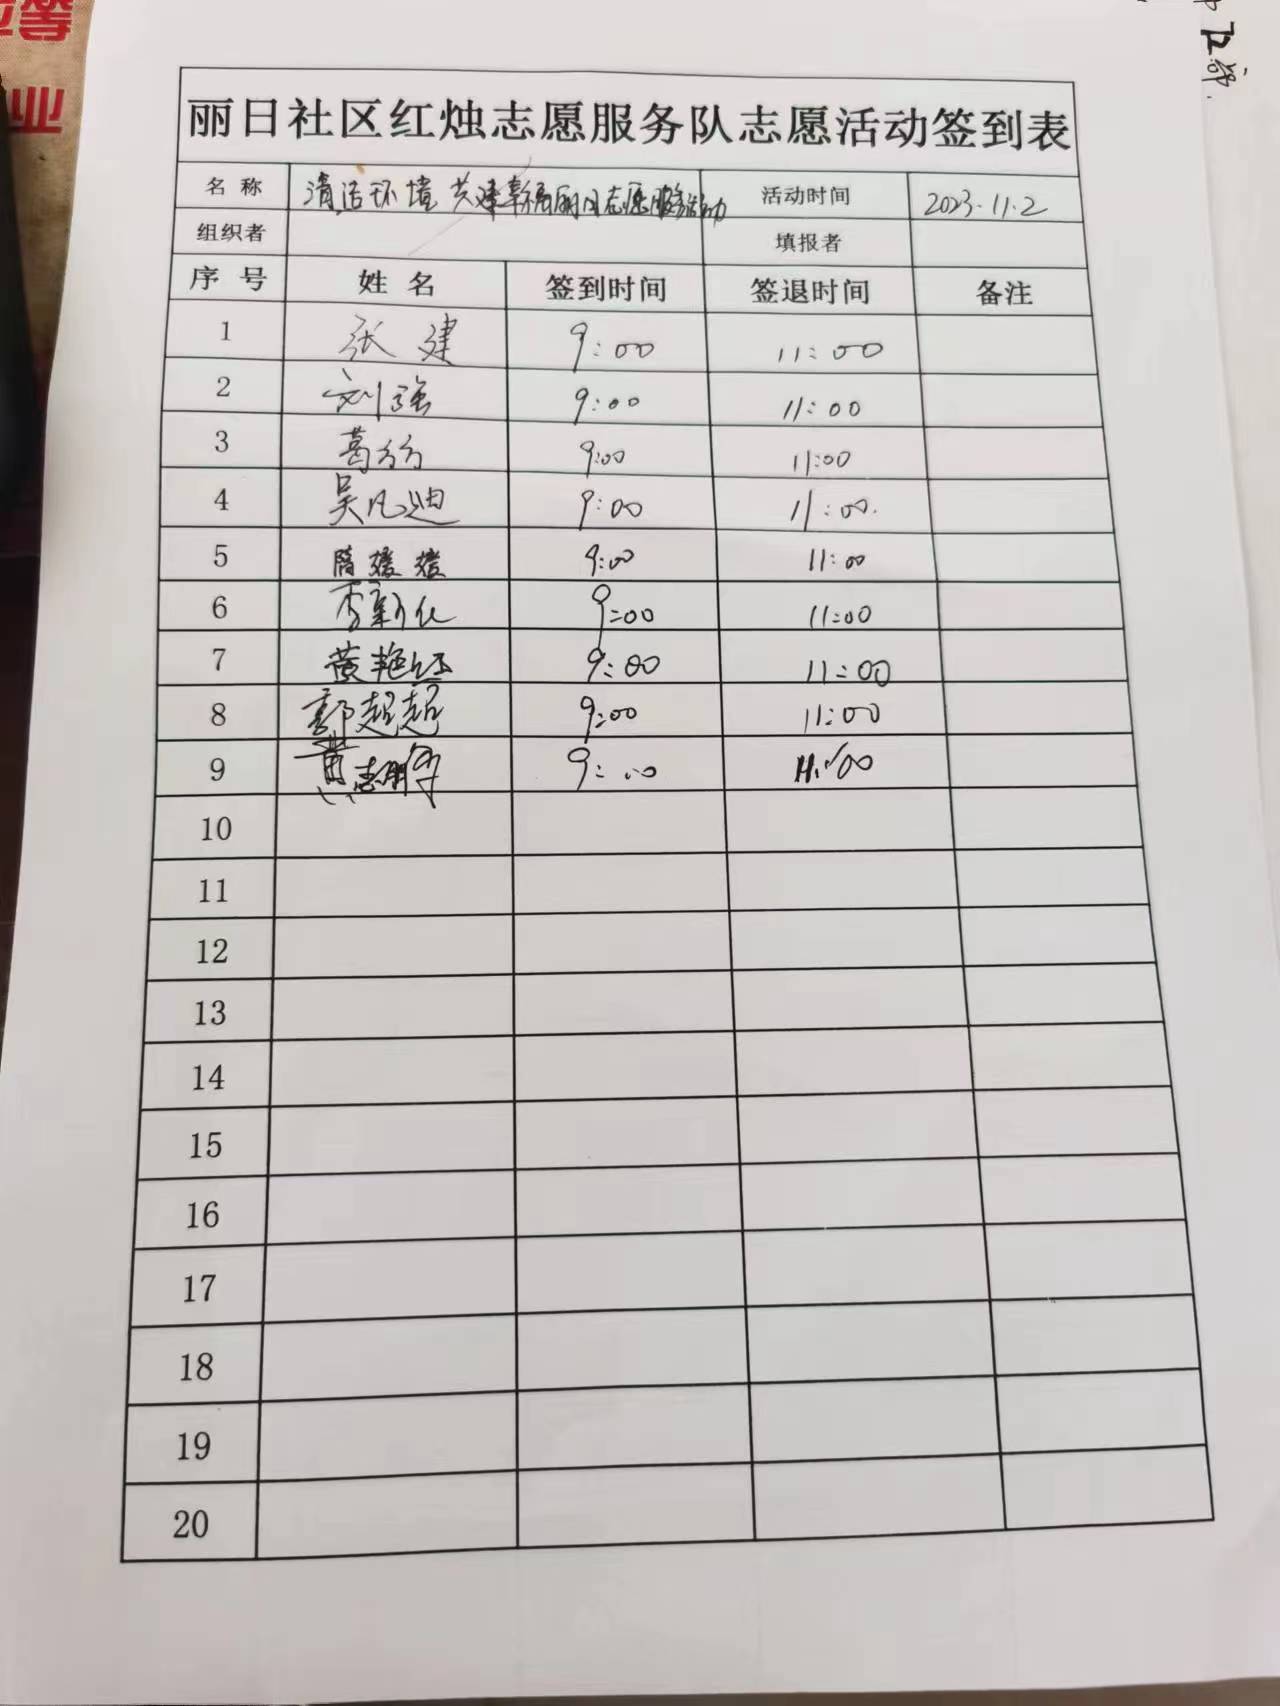 等
业
卫部.
丽日社区红烛志愿服务队志愿活动签到表
名称 清洁环境 共建幸福丽日志愿服务活动 活动时间 2023.11.2
组织者 填报者
序号 姓名 签到时间 签退时间 备注
1 张建 9:00 11:00
2 刘强 9:00 11:00
3 葛 9:00 11:00
4 吴凡迪 9:00 11:00.
5 9:00 11:00
6 李新化 9:00 11:00
7 黄艳红 9:00 11:00
8 郭超超 9:00 11:00
9 黄志博 9:00 11:00
10
11
12
13
14
15
16
17
18
19
20